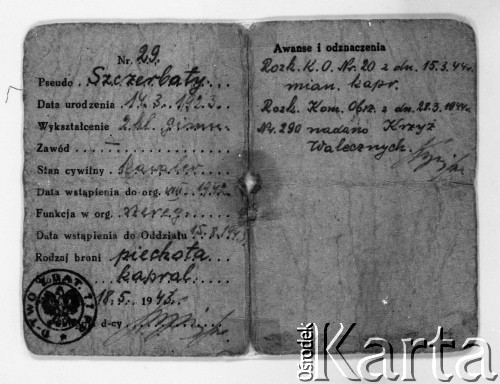 Nr. 29.
Pseudo Szczerbaty
Data urodzenia 14.3.1923.
Wykształcenie 2 kl. gimn.
Zawód —
Stan cywilny kawaler
Data wstąpienia do org. 1942
Funkcja w org. szereg.
Data wstąpienia do Oddziału 15.8.1943
Rodzaj broni piechota
kapral
18.5. 1943.
d-cy
D-TWO BAT. 77
Awanse i odznaczenia
Rozk. K.O. Nr. 20 z dn. 15.3.44r.
mian. kapr.
Rozk. Kom. Okr. z dn. 28.3.1944r.
Nr. 290 nadano Krzyż
Walecznych.
ośrodek Karta